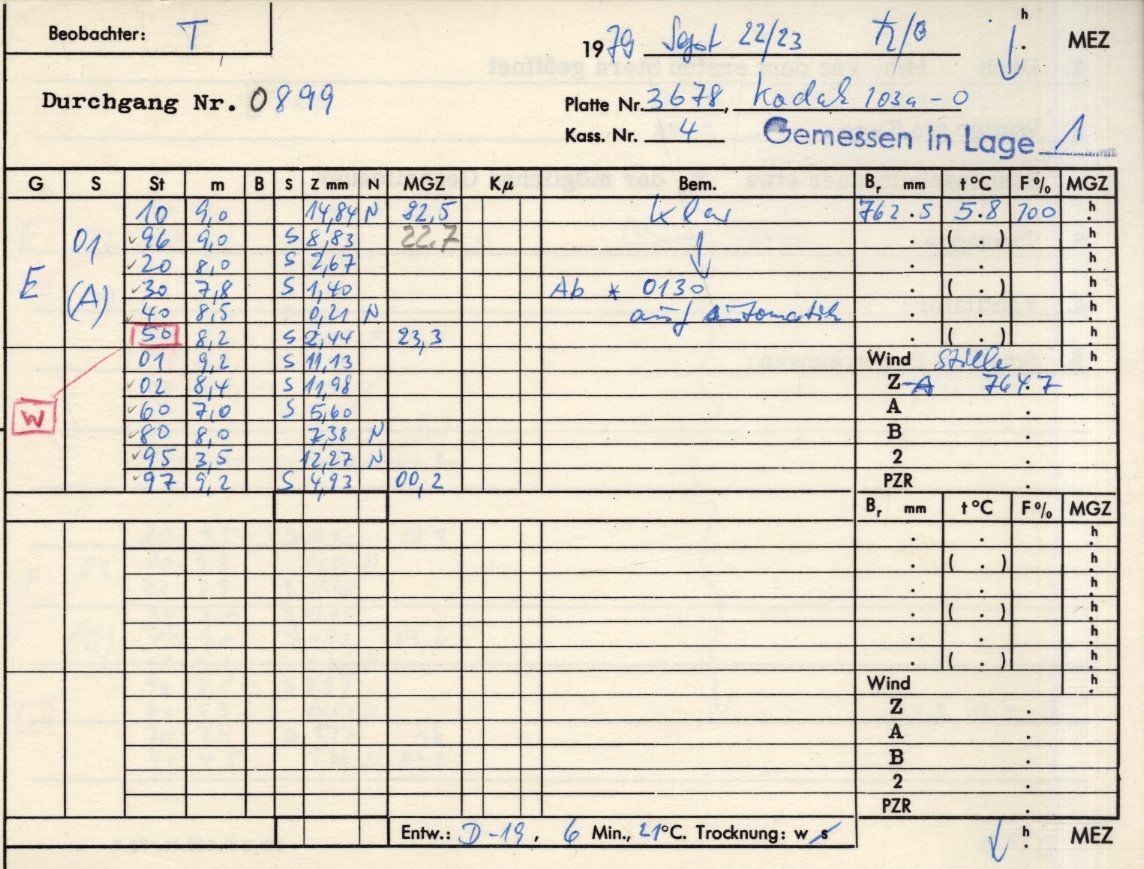 Beobachter: T
1979 Sept 22/23 ♄/☉ h . MEZ
Durchgang Nr. 0899
Platte Nr. 3678, Kodak 103a-O
Kass. Nr. 4 Gemessen in Lage 1
G S St m B S Z mm N MGZ Kμ Bem. Br mm t°C F% MGZ
10 9,0 14,84 N 22,5 klar 762.5 5.8 100 h
E 01 (A) 96 9,0 S 8,83 22,7 . ( . ) h
20 8,0 S 2,67 . .
30 7,8 S 1,40 Ab * 0130 . ( . ) h
40 8,5 0,21 N auf automatik . .
50 8,2 S 2,44 23,3 . ( . ) h
01 9,2 S 11,13 Wind Stille h
02 8,4 S 11,98 Z A 764.7
W 60 7,0 S 5,60 A .
80 8,0 7,38 N B .
95 3,5 12,27 N 2 .
97 9,2 S 4,93 00,2 PZR .
Br mm t°C F% MGZ
. . h
. ( . ) h
. . h
. ( . ) h
. . h
. ( . ) h
Wind h
Z .
A .
B .
2 .
PZR .
Entw.: D-19, 6 Min., 21°C. Trocknung: w s h . MEZ